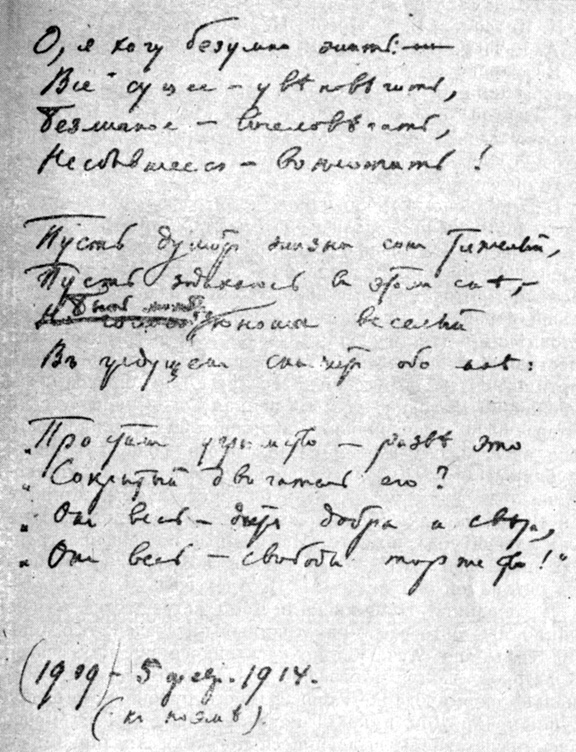 О, я хочу безумно жить: —
Все сущее — увѣковѣчить,
Безличное — вочеловѣчить,
Несбывшееся — воплотить!
Пусть душит жизни сон тяжелый,
Пусть задыхаюсь в этом снѣ, —
Быть может, юноша веселый
Въ грядущем скажет обо мнѣ:
„Простим угрюмство — развѣ это
„Сокрытый двигатель его?
„Он весь — дитя добра и свѣта,
„Он весь — свободы торжество!“
(1909) – 5 февр. 1914.
(к поэмѣ).